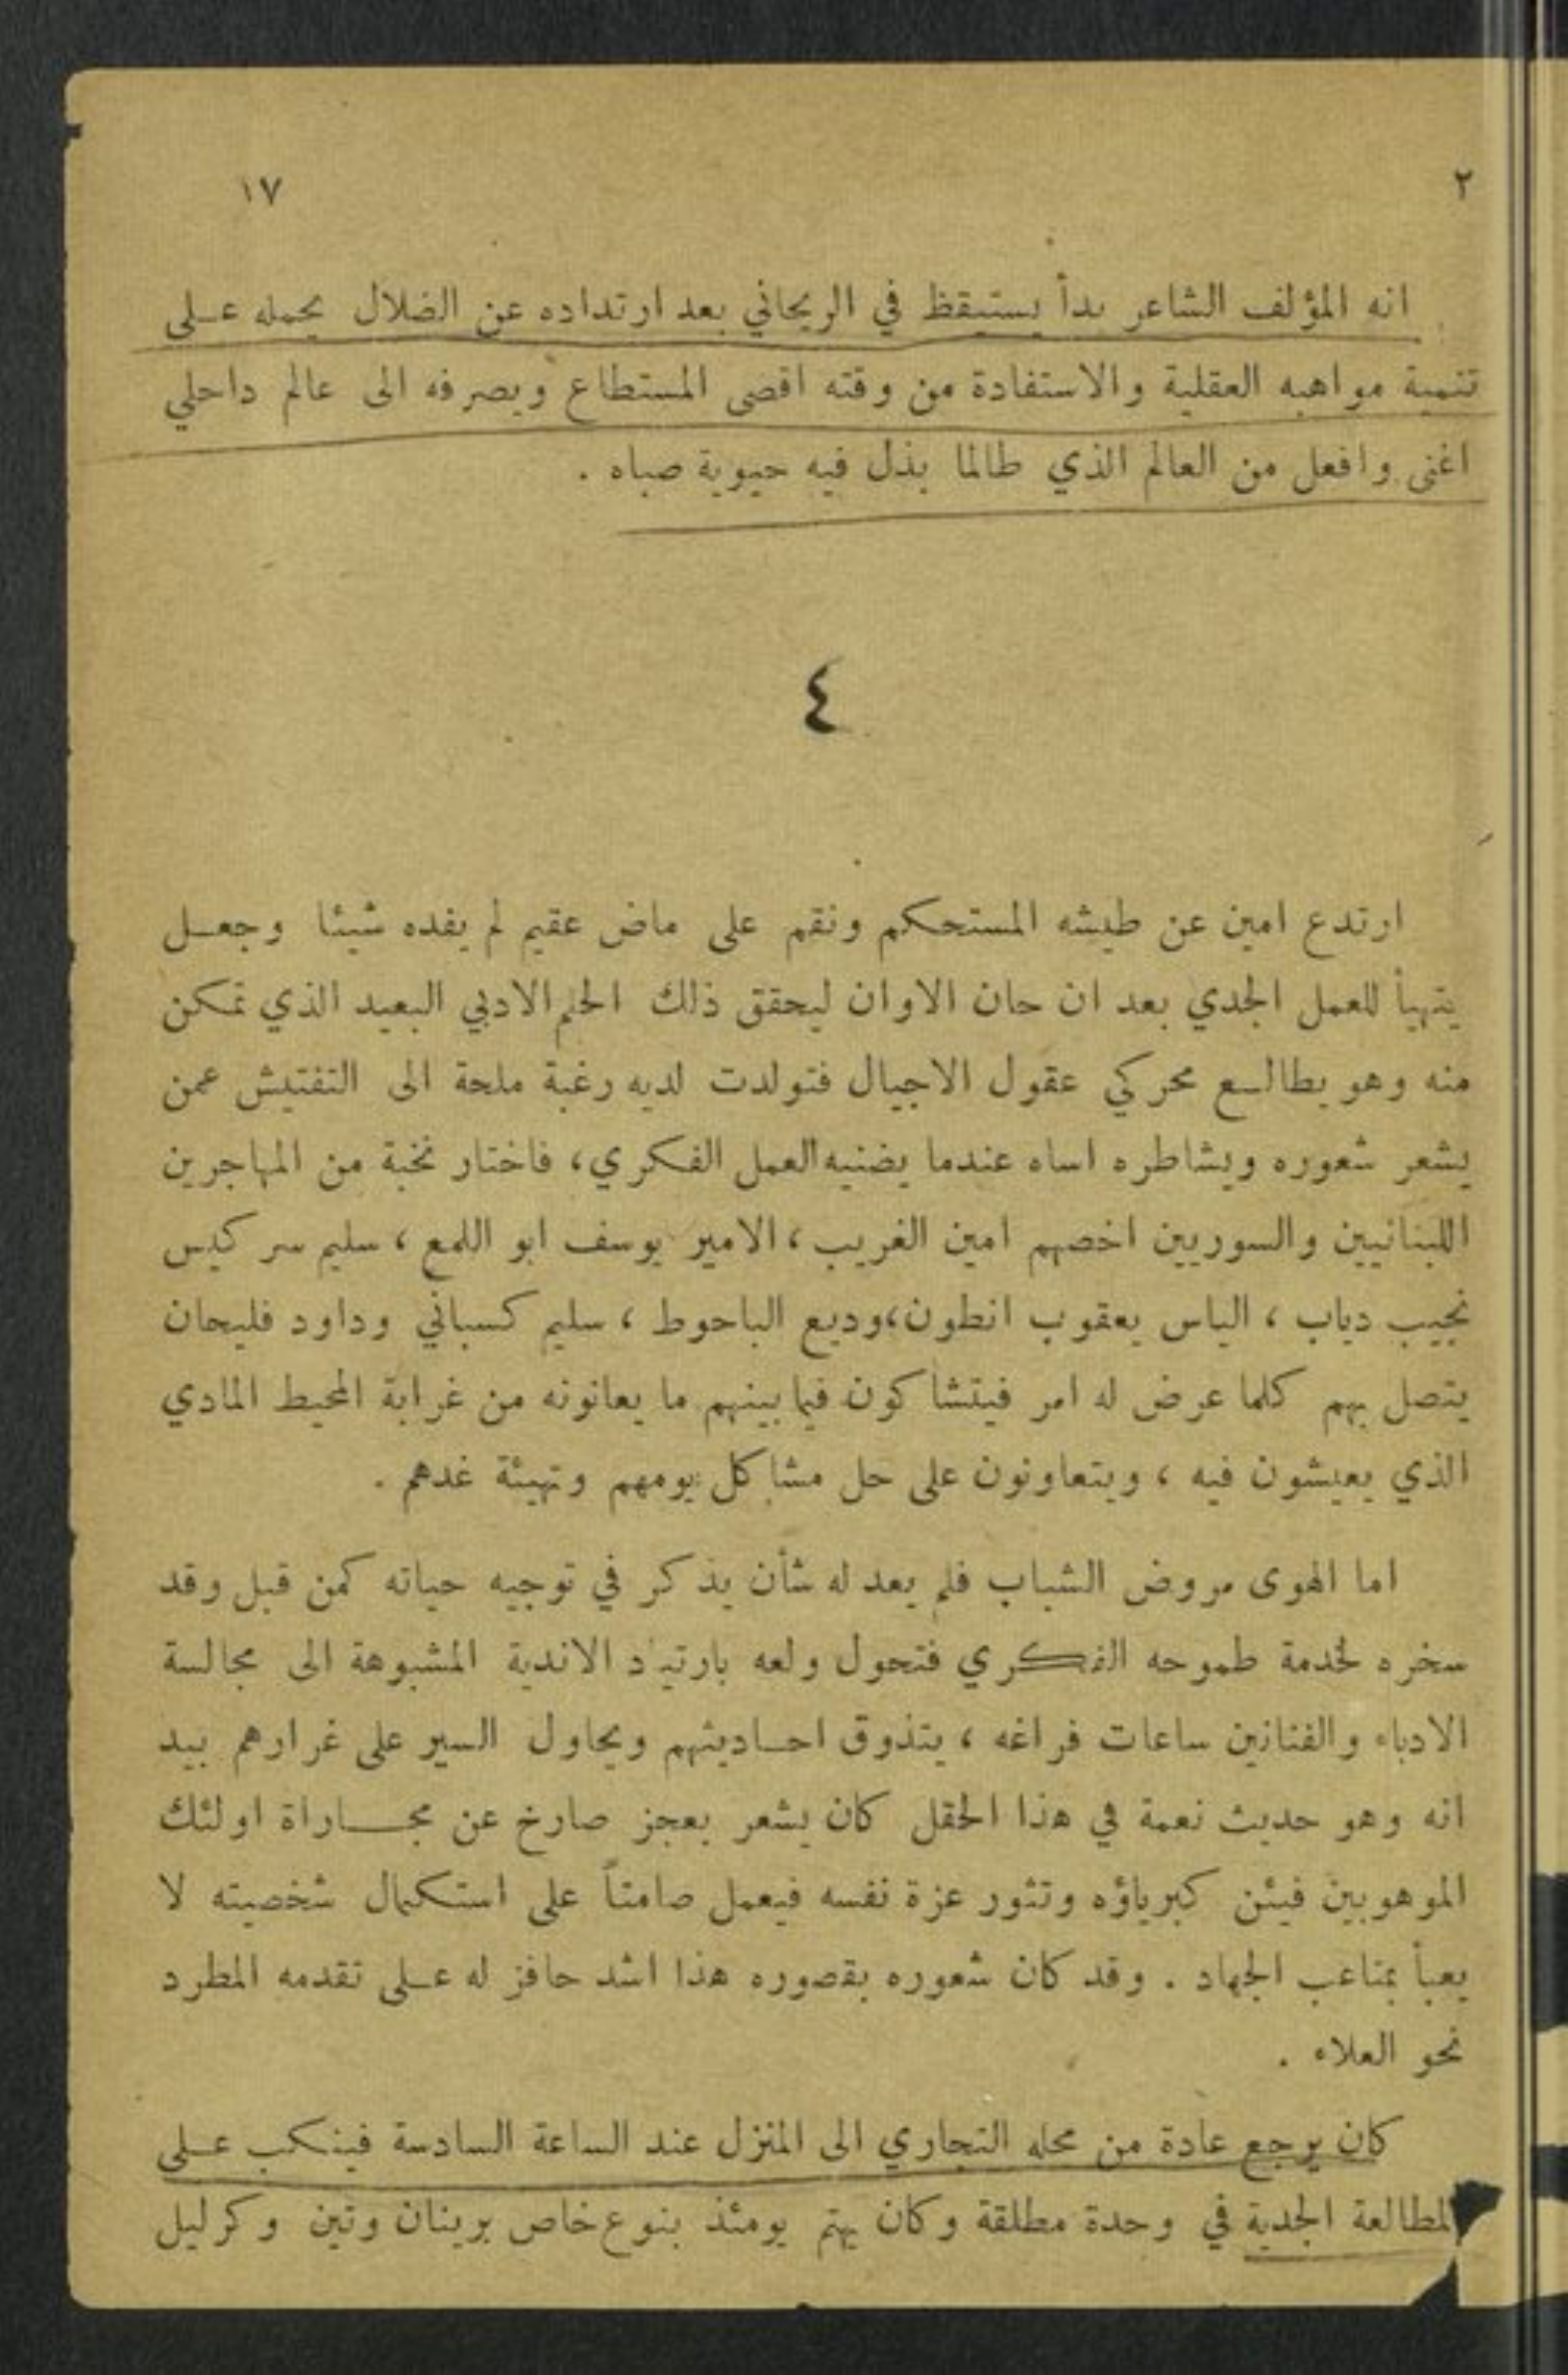 ٢ ١٧
انه المؤلف الشاعر بدأ يستيقظ في الريحاني بعد ارتداده عن الضلال يحمله على
تنمية مواهبه العقلية والاستفادة من وقته اقصى المستطاع ويصرفه الى عالم داخلي
اغنى وافعل من العالم الذي طالما بذل فيه حيوية صباه .
٤
ارتدع امين عن طيشه المستحكم ونقم على ماض عقيم لم يفده شيئا وجعل
يتهيأ للعمل الجدي بعد ان حان الاوان ليحقق ذلك الحلم الادبي البعيد الذي تمكن
منه وهو يطالع محركي عقول الاجيال فتولدت لديه رغبة ملحة الى التفتيش عمن
يشعر شعوره ويشاطره اساه عندما يضنيه العمل الفكري، فاختار نخبة من المهاجرين
اللبنانيين والسوريين اخصهم امين الغريب ، الامير يوسف ابو اللمع ، سليم سركيس
نجيب دياب ، الياس يعقوب انطون،وديع الباحوط ، سليم كسباني وداود فليحان
يتصل بهم كلما عرض له امر فيتشاكون فيما بينهم ما يعانونه من غرابة المحيط المادي
الذي يعيشون فيه ، ويتعاونون على حل مشاكل يومهم وتهيئة غدهم .
اما الهوى مروض الشباب فلم يعد له شأن يذكر في توجيه حياته كمن قبل وقد
سخره لخدمة طموحه الفكري فتحول ولعه بارتياد الاندية المشبوهة الى مجالسة
الادباء والفنانين ساعات فراغه ، يتذوق احاديثهم ويحاول السير على غرارهم بيد
انه وهو حديث نعمة في هذا الحقل كان يشعر بعجز صارخ عن مجاراة اولئك
الموهوبين فيئن كبرياؤه وتثور عزة نفسه فيعمل صامتاً على استكمال شخصيته لا
يعبأ بمتاعب الجهاد . وقد كان شعوره بقصوره هذا اشد حافز له على تقدمه المطرد
نحو العلاء .
كان يرجع عادة من محله التجاري الى المنزل عند الساعة السادسة فينكب على
المطالعة الجدية في وحدة مطلقة وكان يهتم يومئذ بنوع خاص برينان وتين وكرليل